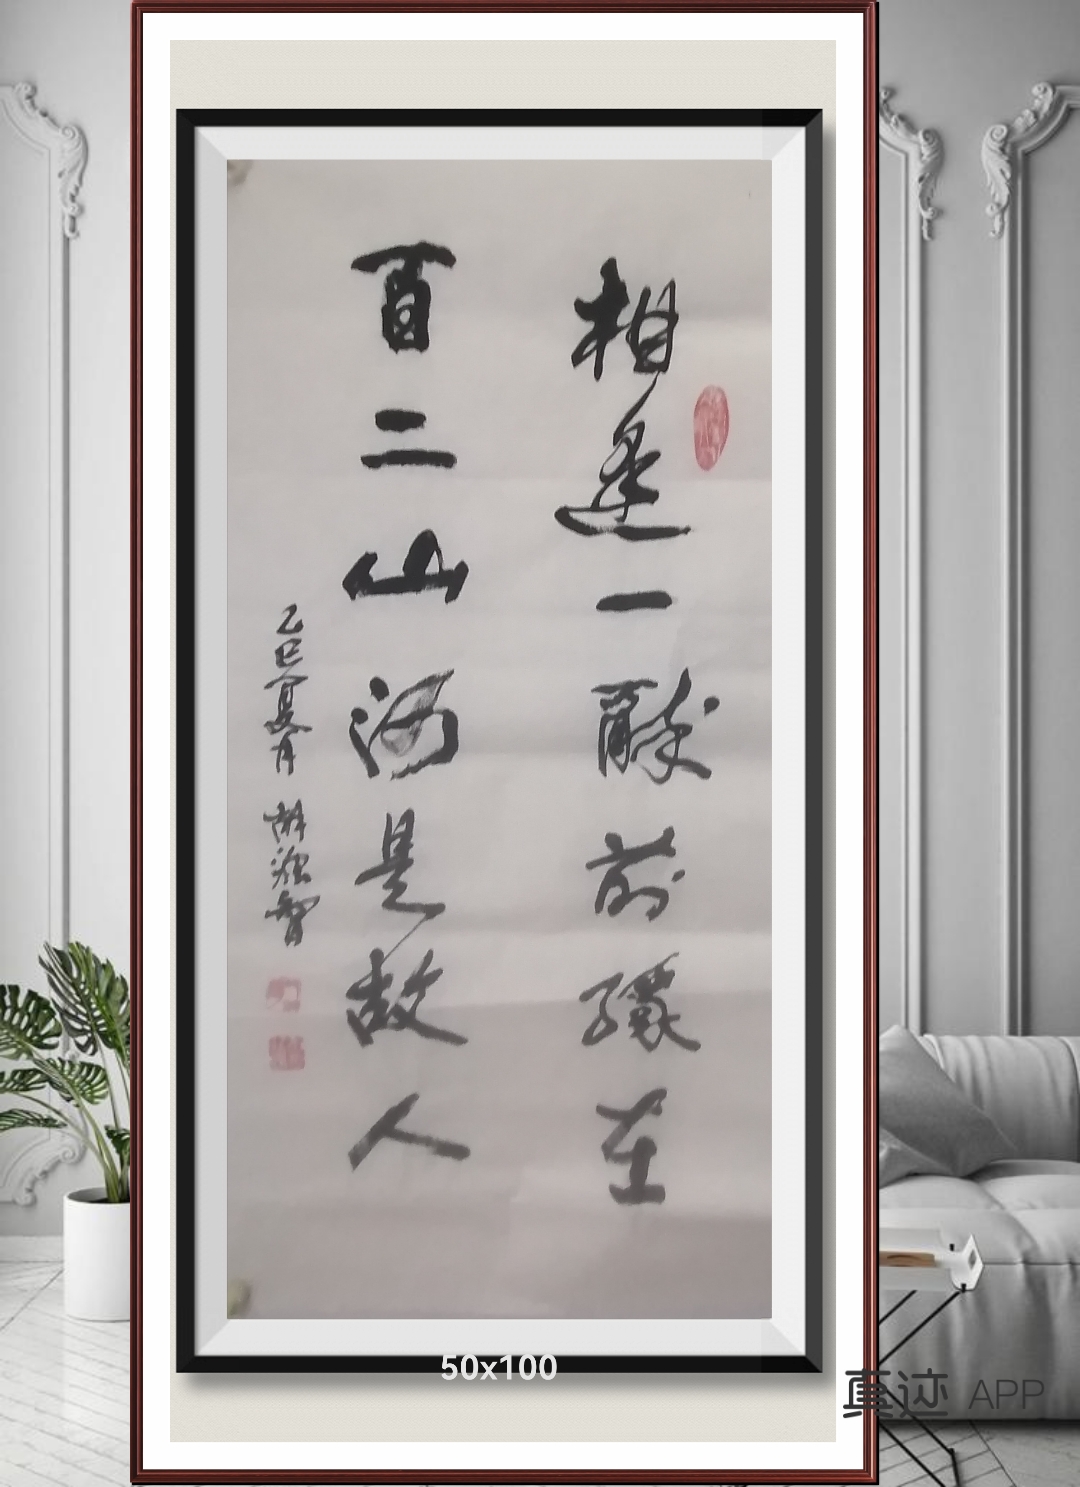 相逢一醉前緣在
百二山河是故人
乙巳夏月
50x100
真迹 APP